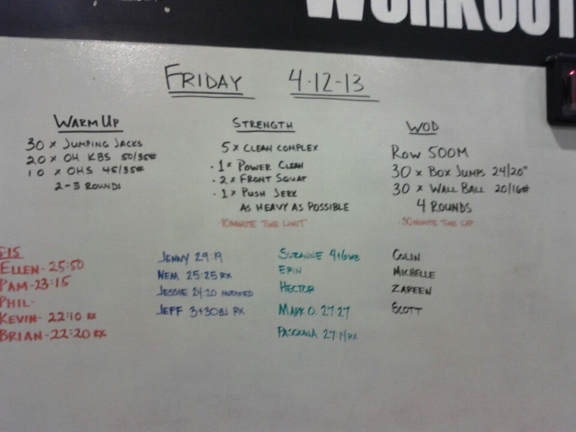 WORKOUT
FRIDAY 4-12-13
WARM UP
30 x JUMPING JACKS
20 x OH KBS 50/35#
10 x OHS 45/35#
2-3 ROUNDS
STRENGTH
5 x CLEAN COMPLEX
· 1 x POWER CLEAN
· 2 x FRONT SQUAT
· 1 x PUSH JERK
AS HEAVY AS POSSIBLE
·10 MINUTE TIME LIMIT
WOD
ROW 500M
30 x BOX JUMPS 24/20"
30 x WALL BALL 20/16#
4 ROUNDS
·30 MINUTE TIME CAP
5:15
ELLEN- 25:50
PAM- 23:15
PHIL-
KEVIN- 22:10 RX
BRIAN- 22:20 RX
JENNY 29:19
NEM 25:25 RX
JESSIE 24:20 MODIFIED
JEFF 3+30BJ RX
SUZANNE 4+6WB
ERIN
HECTOR
MARK O. 27:27
PASQUALA 27:14 RX
COLIN
MICHELLE
ZAREEN
SCOTT